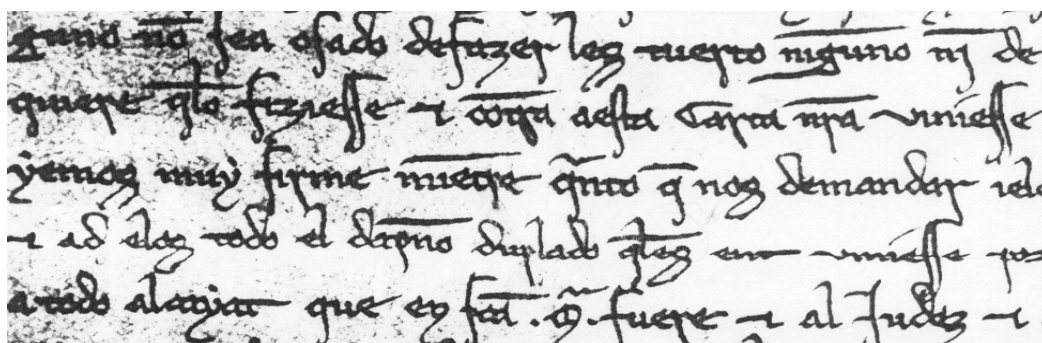 guno nō sea osado defazer les tuerto nīguno nī de
quiere q̄lo fiziesse ⁊ cōtra aesta Carta nr̄a viniesse
yemos muy firme mietre q̄nto q̄ nos demandar
⁊ ad elos todo el dapño duplado q̄les ent viniesse por
a todo que en fuere ⁊ al Judez ⁊